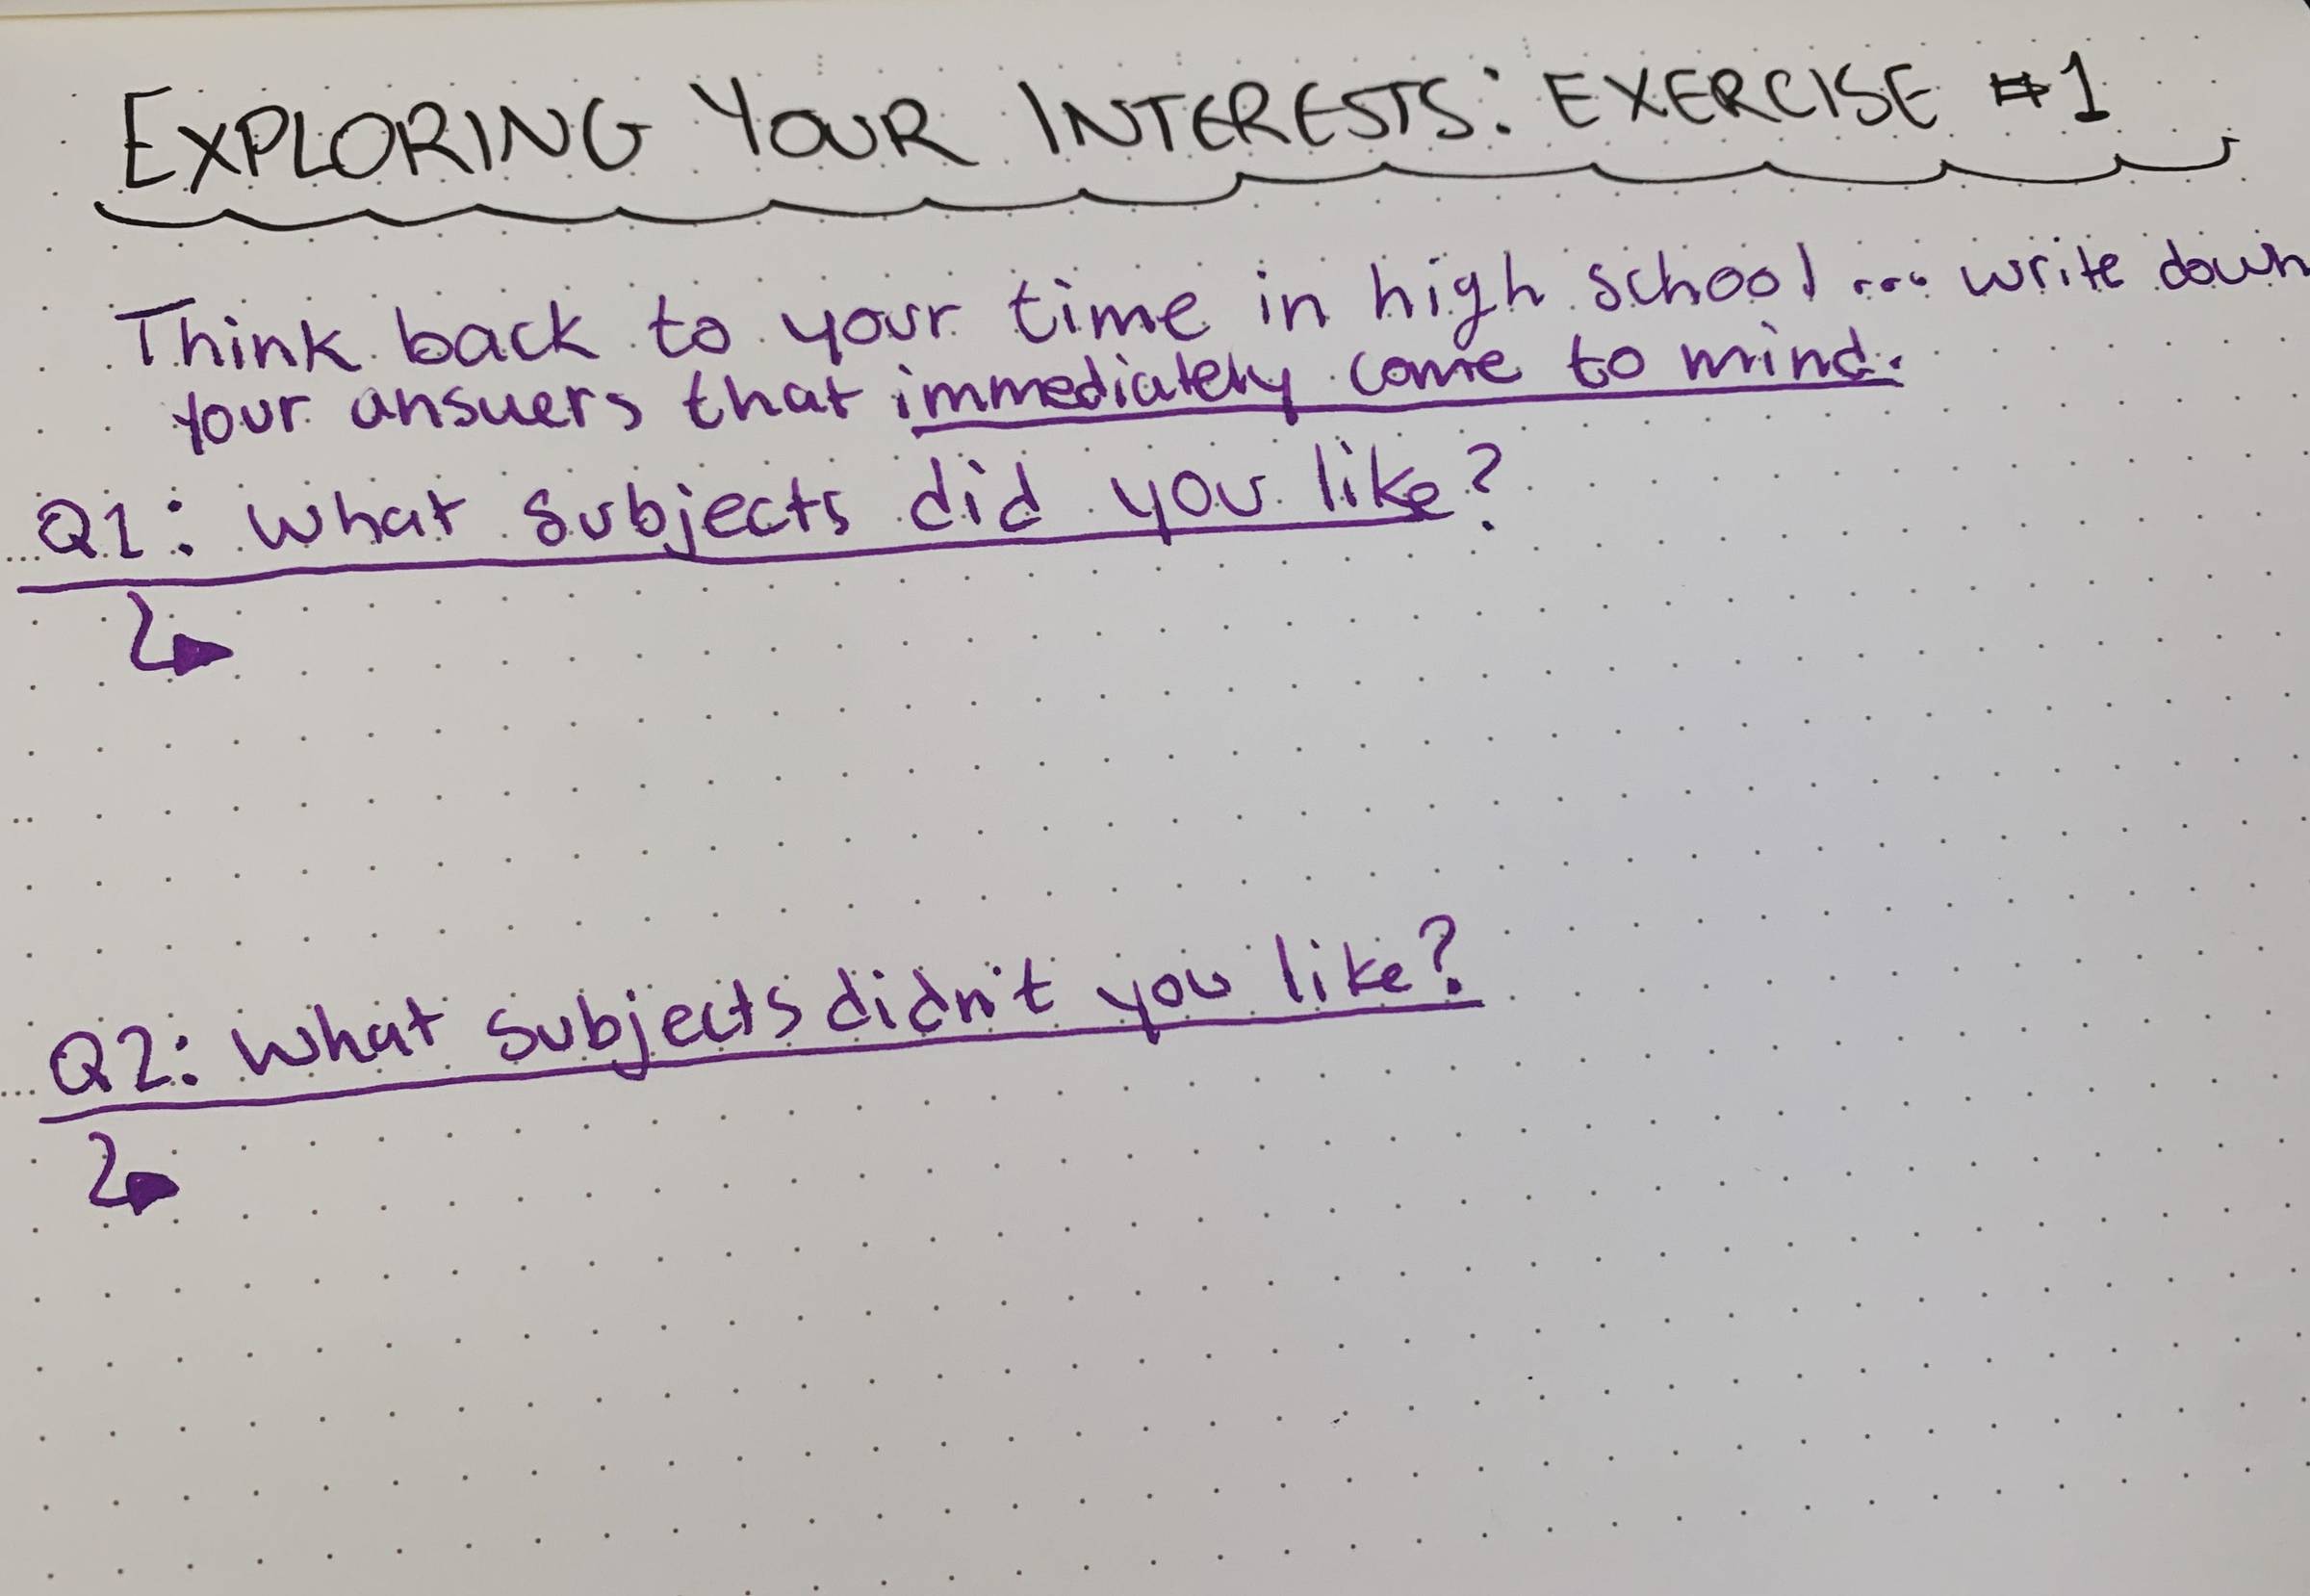 EXPLORING YOUR INTERESTS: EXERCISE #1
Think back to your time in high school ... write down
your answers that immediately come to mind.
Q1: What subjects did you like?
Q2: What subjects didn't you like?